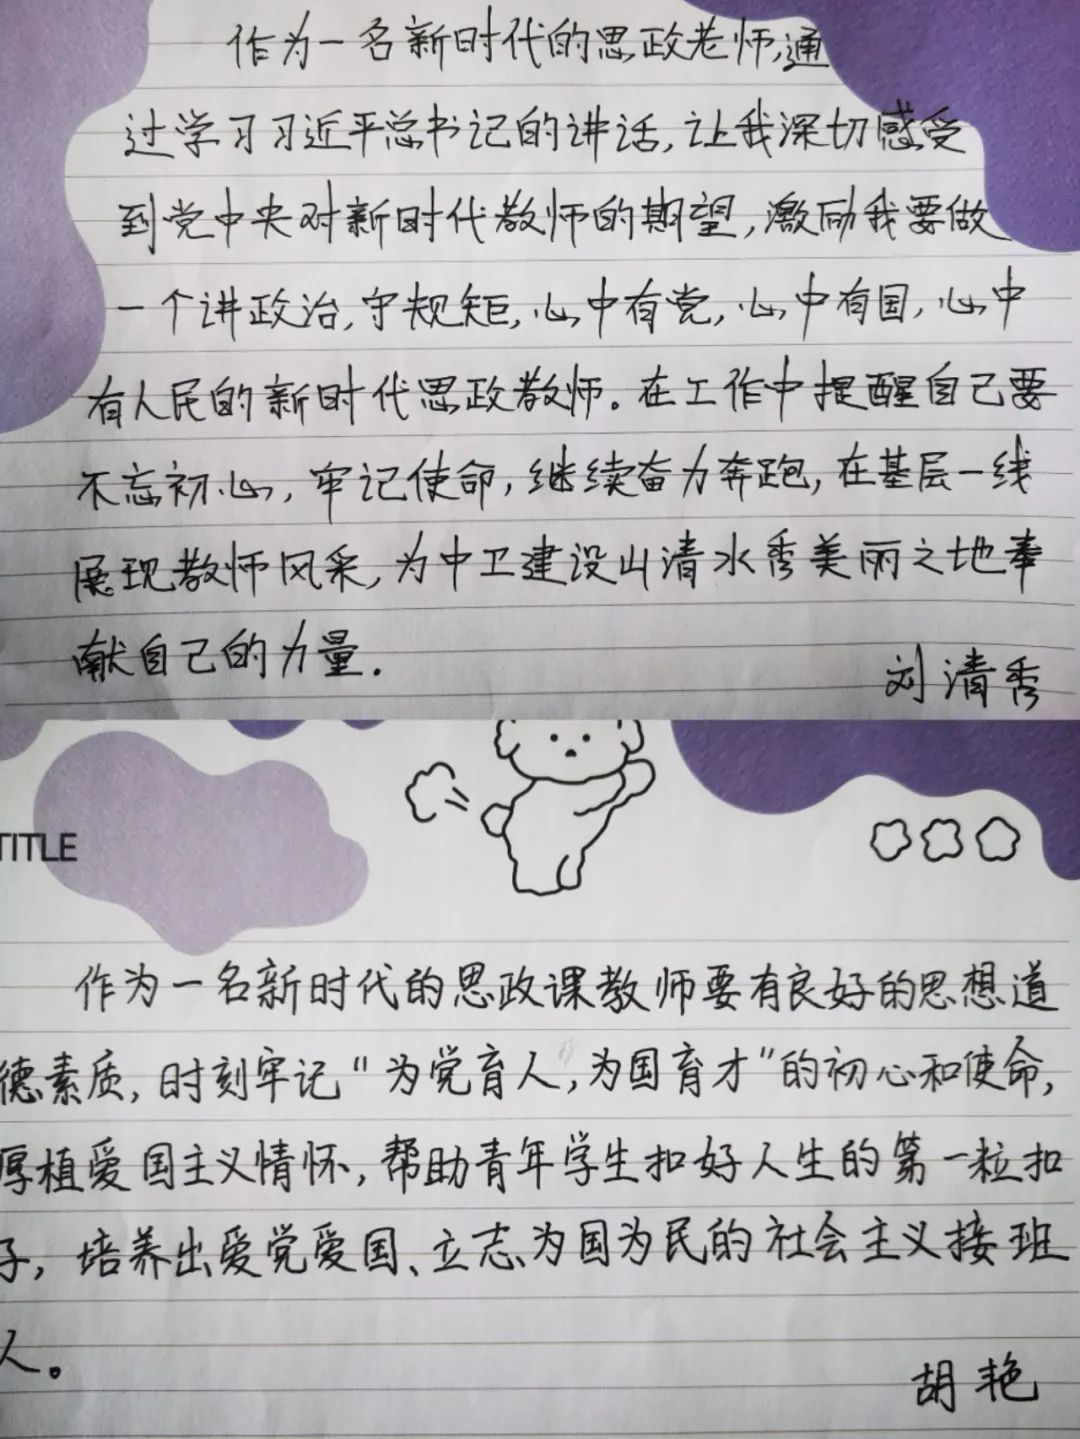 作为一名新时代的思政老师,通
过学习习近平总书记的讲话,让我深切感受
到党中央对新时代教师的期望,激励我要做
一个讲政治,守规矩,心中有党,心中有国,心中
有人民的新时代思政教师。在工作中提醒自己要
不忘初心,牢记使命,继续奋力奔跑,在基层一线
展现教师风采,为中卫建设山清水秀美丽之地奉
献自己的力量.
刘清秀
TITLE
作为一名新时代的思政课教师要有良好的思想道
德素质,时刻牢记"为党育人,为国育才"的初心和使命,
厚植爱国主义情怀,帮助青年学生扣好人生的第一粒扣
子,培养出爱党爱国、立志为国为民的社会主义接班
人。
胡艳